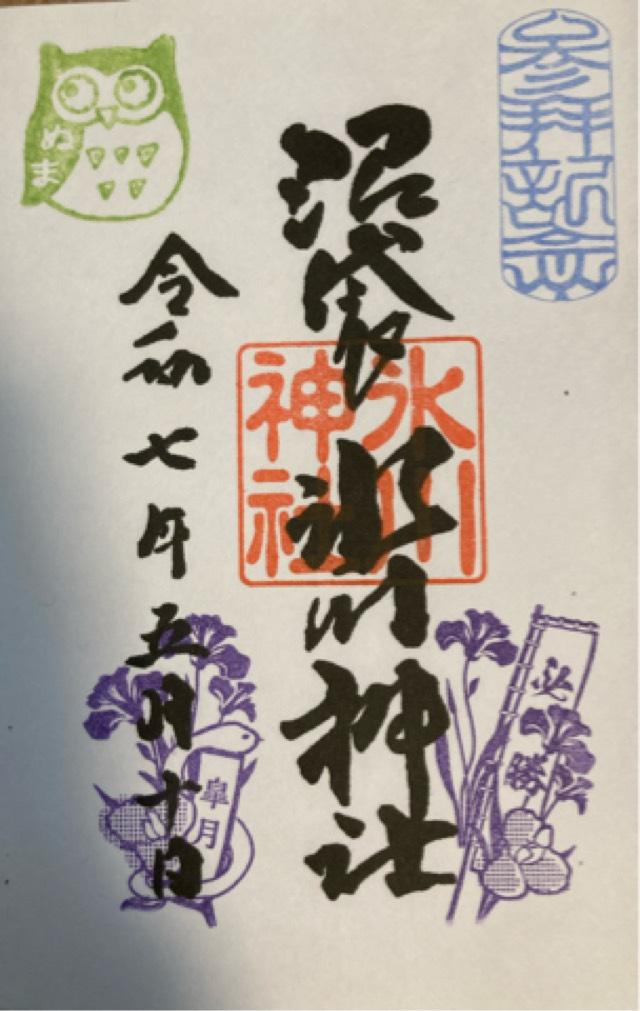 参拝記念
沼袋氷川神社
氷川
神社
必勝
令和七年五月十日
皐月
ぬま